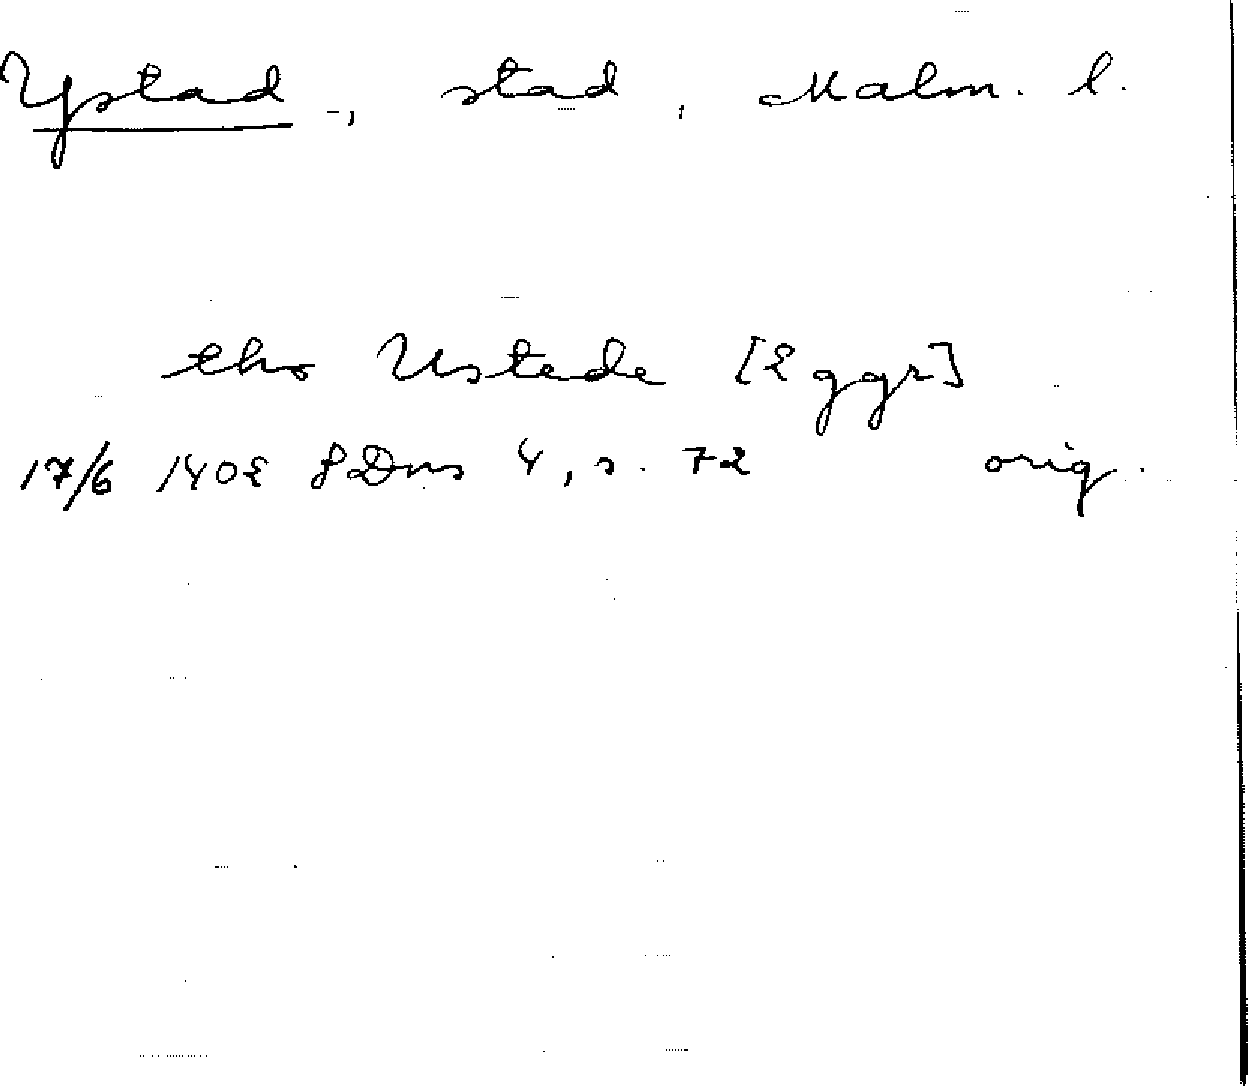 Ystad, stad, Malm. l.
tho Ustede [2 ggr]
17/6 1402 SDns 4, s. 72 orig.